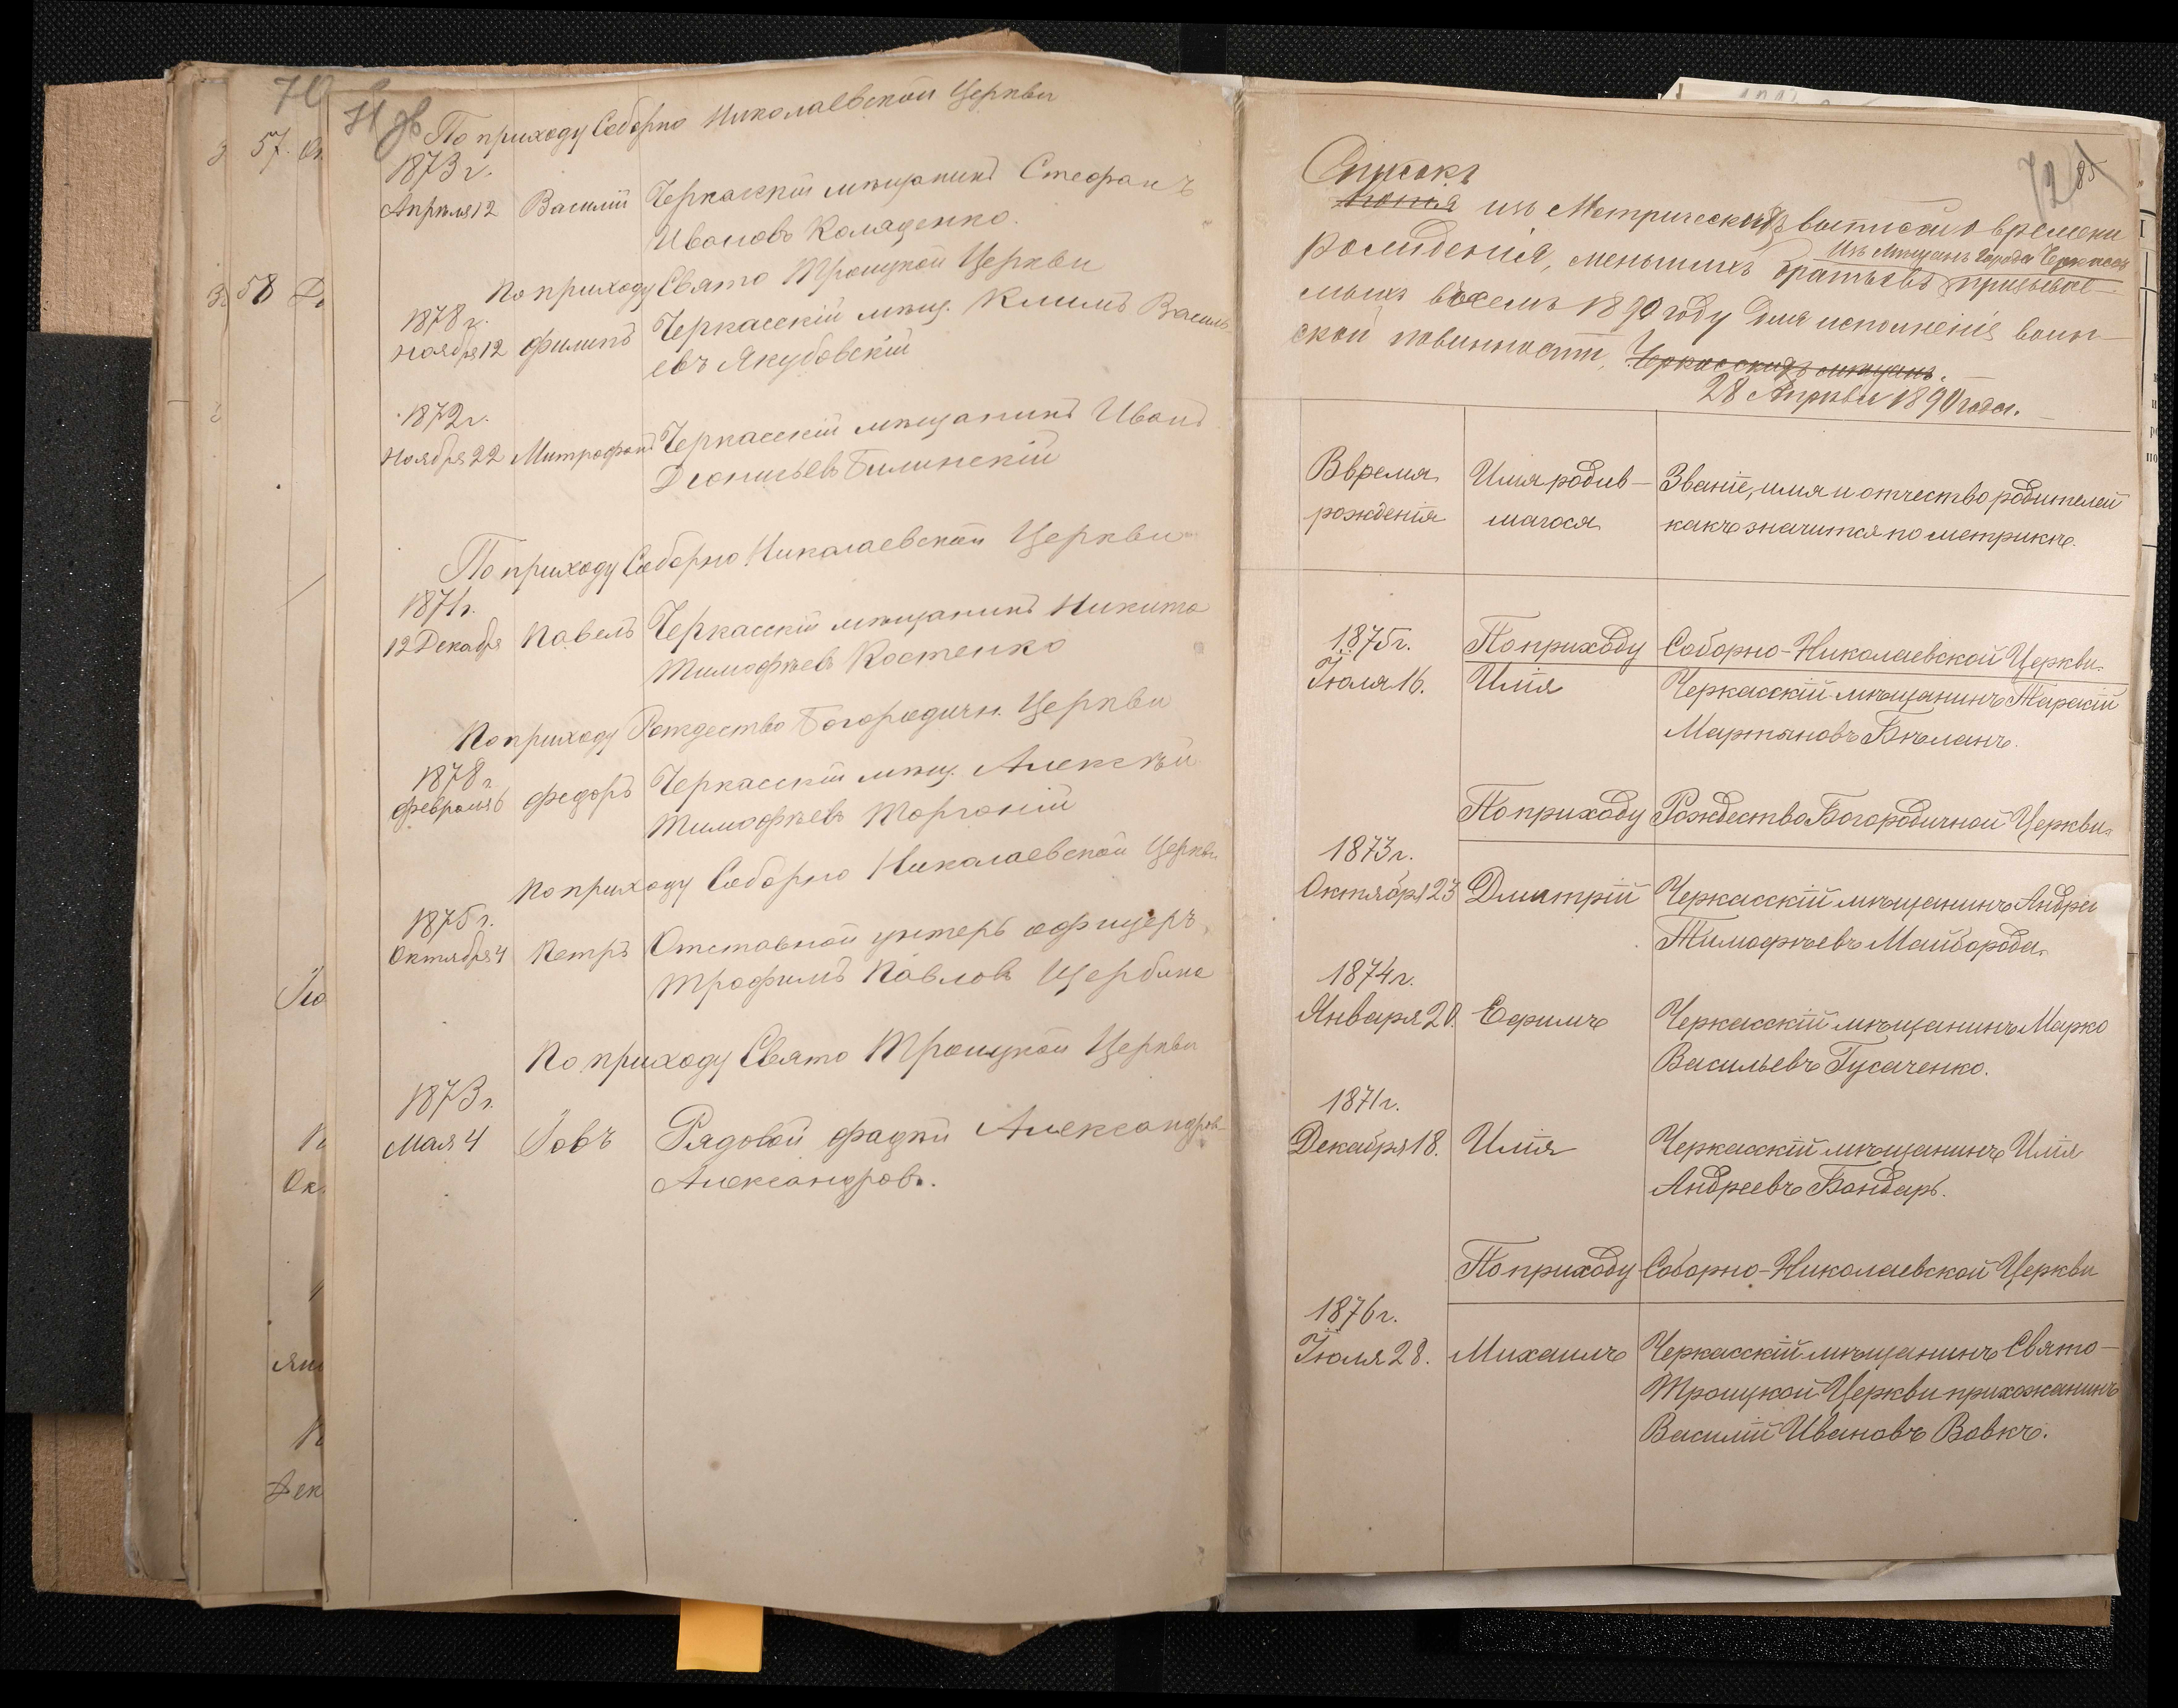 70
57.
58
71 об
По приходу Соборно Николаевской Церкви
1873 г.
Апрѣля 12 Василій Черкасскій мѣщанинъ Стефанъ
Ивановъ Коляденко.
По приходу Свято Троицкой Церкви
1878 г.
Ноября 12 Филипъ Черкасскій мѣщ. Климъ Василь
евъ Якубовскій
1872 г.
Ноября 22 Митрофанъ Черкасскій мѣщанинъ Иванъ
Діонисьевъ Билинскій
По приходу Соборно Николаевской Церкви
1871 г.
12 Декабря Павелъ Черкасскій мѣщанинъ Никита
Тимофѣевъ Костенко
По приходу Рождество Богородичн. Церкви
1878 г.
Февраля 6 Федоръ Черкасскій мѣщ. Алексѣй
Тимофѣевъ
По приходу Соборно Николаевской Церкви
1875 г.
Октября 4 Петръ Отставной унтеръ офицеръ,
Трофимъ Павловъ Щербина
По приходу Свято Троицкой Церкви
1873 г.
Мая 4 Іовъ Рядовой Фадѣй Александров
Александровъ.
72
Списокъ
Копія изъ Метрическихъ выписей о времени
рожденія, меньшихъ братьевъ призывае-
Изъ мѣщанъ города Черкассъ
мыхъ въ семъ 1890 году для исполненія воин-
ской повинности, Черкасскихъ мѣщанъ.
28 Апрѣля 1890 года.
Время рожденія
Имя родив-
шагося
Званіе, имя и отчество родителей
какъ значится по метрикѣ.
1875 г. По приходу Соборно-Николаевской Церкви.
Іюля 16. Илія Черкасскій мѣщанинъ Тарасій
Мартыновъ Бѣланъ.
По приходу Рождество Богородичной Церкви.
1873 г.
Октября 23 Дмитрій Черкасскій мѣщанинъ Андрей
Тимофѣевъ Майборода.
1874 г.
Января 20. Ефимъ Черкасскій мѣщанинъ Марко
Васильевъ Гусаченко.
1871 г.
Декабря 18. Илія Черкасскій мѣщанинъ Илія
Андреевъ Бондарь.
По приходу Соборно-Николаевской Церкви
1876 г.
Іюля 28. Михаилъ Черкасскій мѣщанинъ Свято-
Троицкой Церкви прихожанинъ
Василій Ивановъ Вовкъ.